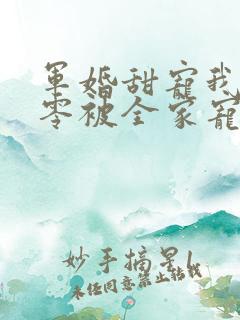 军婚甜宠我
零被全家宠
妙手摘星1
未经同意禁止转载